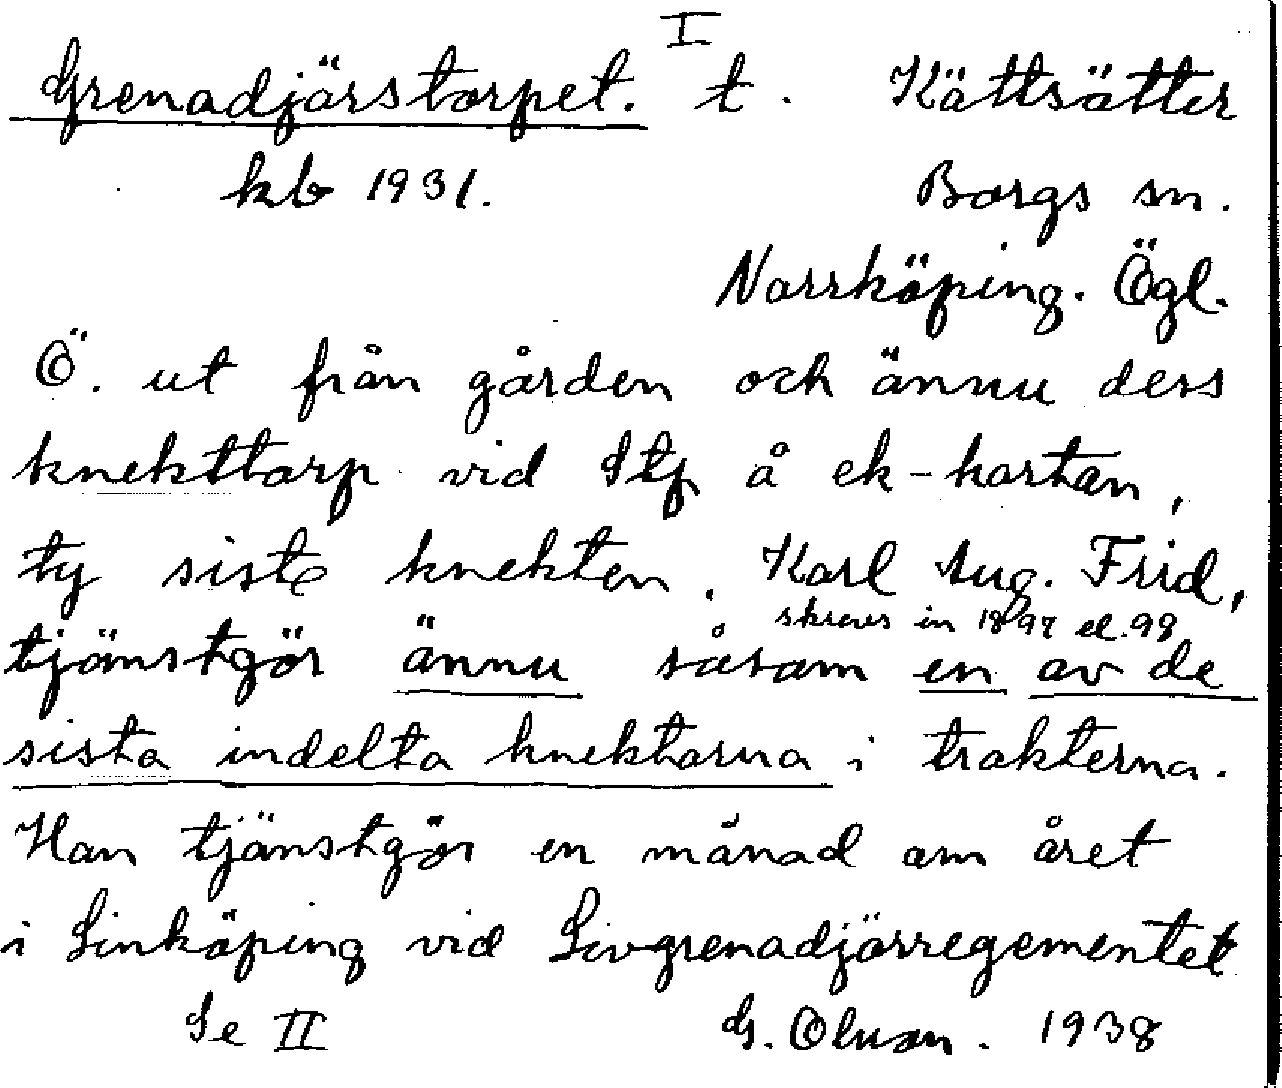 I
Grenadjärstorpet. t. Kättsätter
kb 1931. Borgs sn.
Norrköping. Ögl.
Ö. ut från gården och ännu dess
knekttorp vid Stf å ek-kartan,
ty siste knekten, Karl Aug. Frid,
skrevs in 1897 el. 98
tjänstgör ännu såsom en av de
sista indelta knektarna i trakterna.
Han tjänstgör en månad om året
i Linköping vid Livgrenadjärregementet
Se II G. Olson. 1938